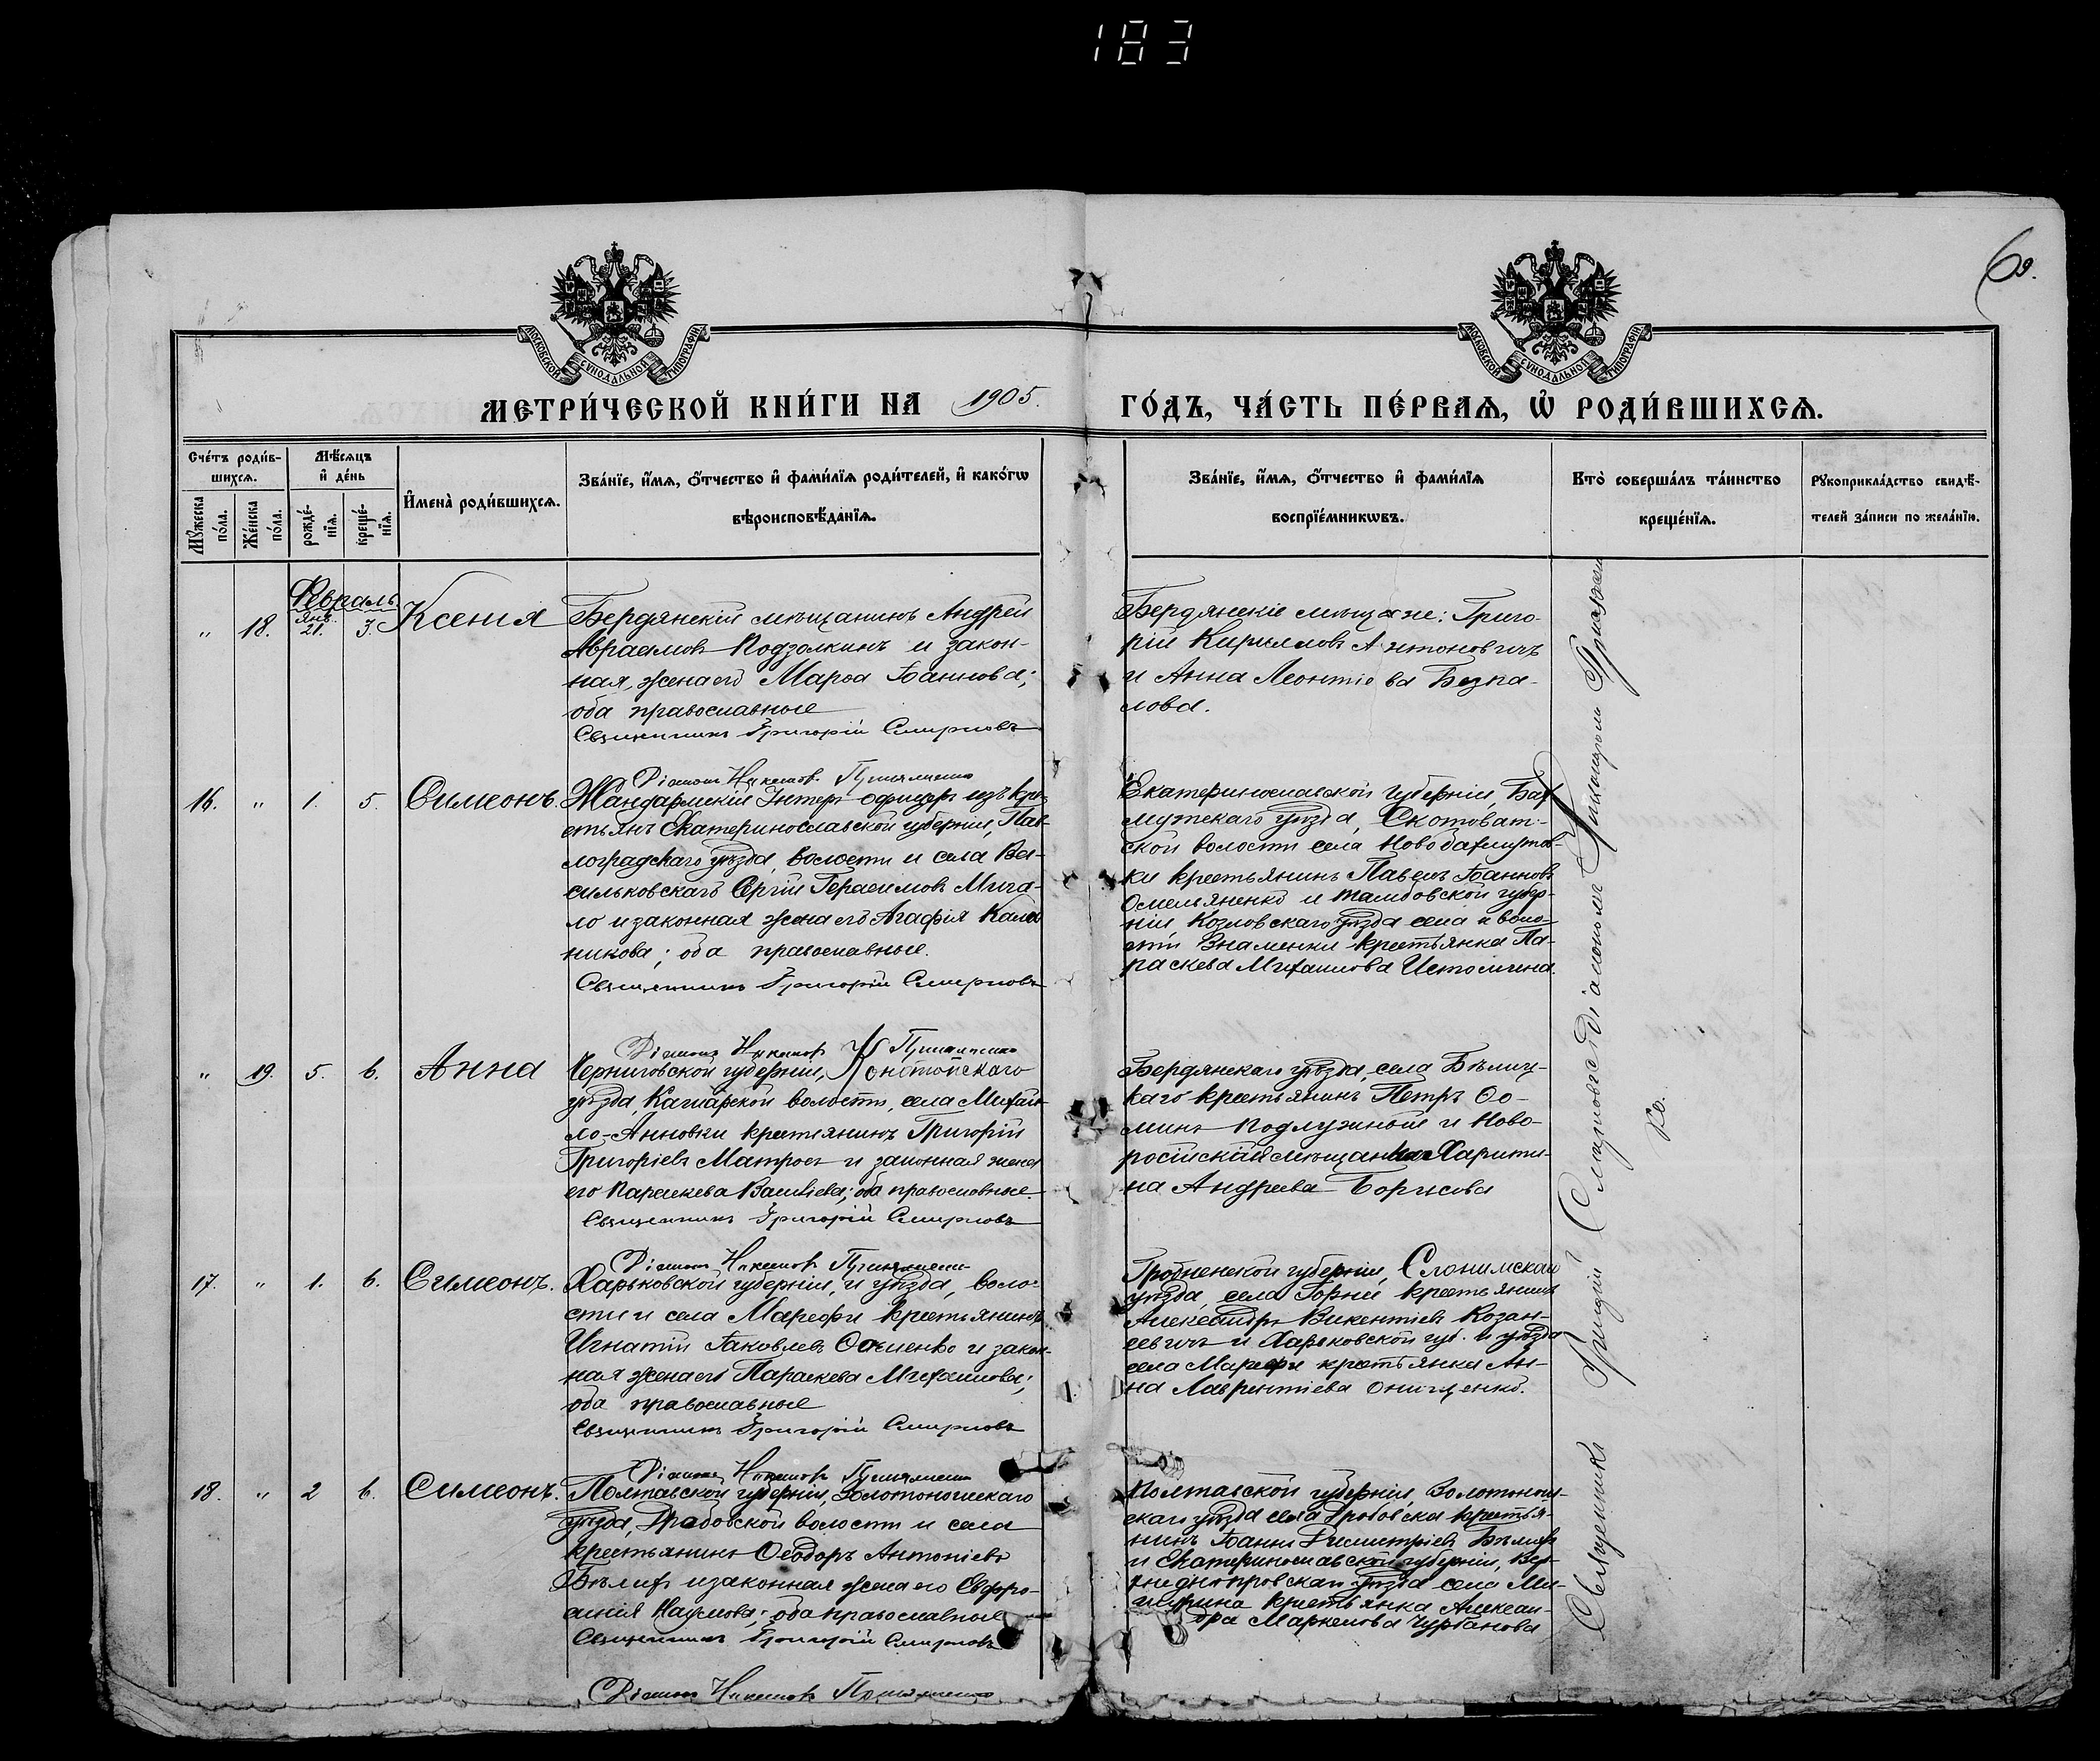 183
69.
МОСКОВСКОЙ СѴНОДАЛЬНОЙ ТИПОГРАФІИ
МОСКОВСКОЙ СѴНОДАЛЬНОЙ ТИПОГРАФІИ
МЕТРИ́ЧЕСКОЙ КНИ́ГИ НА 1905. ГО́ДЪ, ЧА́СТЬ ПЕ́РВАѦ, Ѡ҆ РОДИ́ВШИХСѦ.
Сче́тъ роди́в-
шихсѧ.
Мꙋ́жеска по́ла.
Же́нска по́ла.
Мѣ́сѧцъ
и҆ де́нь
рожде́-
нїѧ.
креще́-
нїѧ.
И҆мена̀ роди́вшихсѧ.
Зва́нїе, и҆́мѧ, ѻ҆́тчество и҆ фами́лїѧ роди́телей, и҆ како́гѡ
вѣроисповѣ́данїѧ.
Зва́нїе, и҆́мѧ, ѻ҆́тчество и҆ фами́лїѧ
воспрїе́мникѡвъ.
Кто̀ соверша́лъ та́инство
креще́нїѧ.
Рꙋкоприкла́дство свидѣ́-
телей за́писи по жела́нїю.
Февраль
„ 18. Янв. 21. 3. Ксенія
Бердянскій мѣщанинъ Андрей
Авраамовъ Подзолкинъ и закон-
ная жена его Марѳа Іоаннова;
оба православные
Священникъ Григорій Смирновъ
Діаконъ Никаноръ
Бердянскіе мѣщане: Григо-
рій Кирилловъ Антоновичъ
и Анна Леонтіева Безпа-
лова.
16. „ 1. 5. Симеонъ.
Жандармскій Унтеръ-офицеръ изъ кре-
стьянъ Екатеринославской губерніи, Пав-
лоградскаго уѣзда, волости и села Ва-
сильковскаго Сергій Герасимовъ Мига-
ло и законная жена его Агафія
никова; оба православные.
Священникъ Григорій Смирновъ
Діаконъ Никаноръ
Екатеринославской губерніи, Бах-
мутскаго уѣзда, Скотоват-
ской волости села Новобахмутов-
ки крестьянинъ Павелъ Іоанновъ
Омельяненко и Тамбовской губер-
ніи, Козловскаго уѣзда села и воло-
сти Знаменки крестьянка Па-
раскева Михаилова Истомина.
„ 19. 5. 6. Анна
Черниговской губерніи, Конотопскаго
уѣзда, волости, села Михай-
ло-Анновки крестьянинъ Григорій
Григоріевъ Матросъ и законная жена
его Параскева Васильева; оба православные.
Священникъ Григорій Смирновъ
Діаконъ Никаноръ
Бердянскаго уѣзда, села
каго крестьянинъ Петръ Ѳо-
минъ Подлужный и Ново-
россійская мѣщанка Харити-
на Андреева Борисова
17. „ 1. 6. Симеонъ.
Харьковской губерніи, и уѣзда, воло-
сти и села Мерефи крестьянинъ
Игнатій Іаковлевъ и закон-
ная жена его Параскева Михаилова;
оба православные
Священникъ Григорій Смирновъ
Діаконъ Никаноръ
Гродненской губерніи, Слонимскаго
уѣзда, села крестьянинъ
Александръ Викентіевъ
и Харьковской губ. и уѣзда
села Мерефи крестьянка Ан-
на Лаврентіева Онищенко.
18. „ 2 6. Симеонъ.
Полтавской губерніи, Золотоношскаго
уѣзда, Драбовской волости и села
крестьянинъ Ѳеодоръ Антоніевъ
и законная жена его Евфро-
синія Наумова; оба православные
Священникъ Григорій Смирновъ
Діаконъ Никаноръ
Полтавской губерніи Золотонош-
скаго уѣзда села крестья-
нинъ Іоаннъ Димитріевъ
и Екатеринославской губерніи, Вер-
хнеднѣпровскаго уѣзда села Ми-
шурина крестьянка Алексан-
дра Маркелова
Священникъ Григорій Смирновъ съ діакономъ Никаноромъ